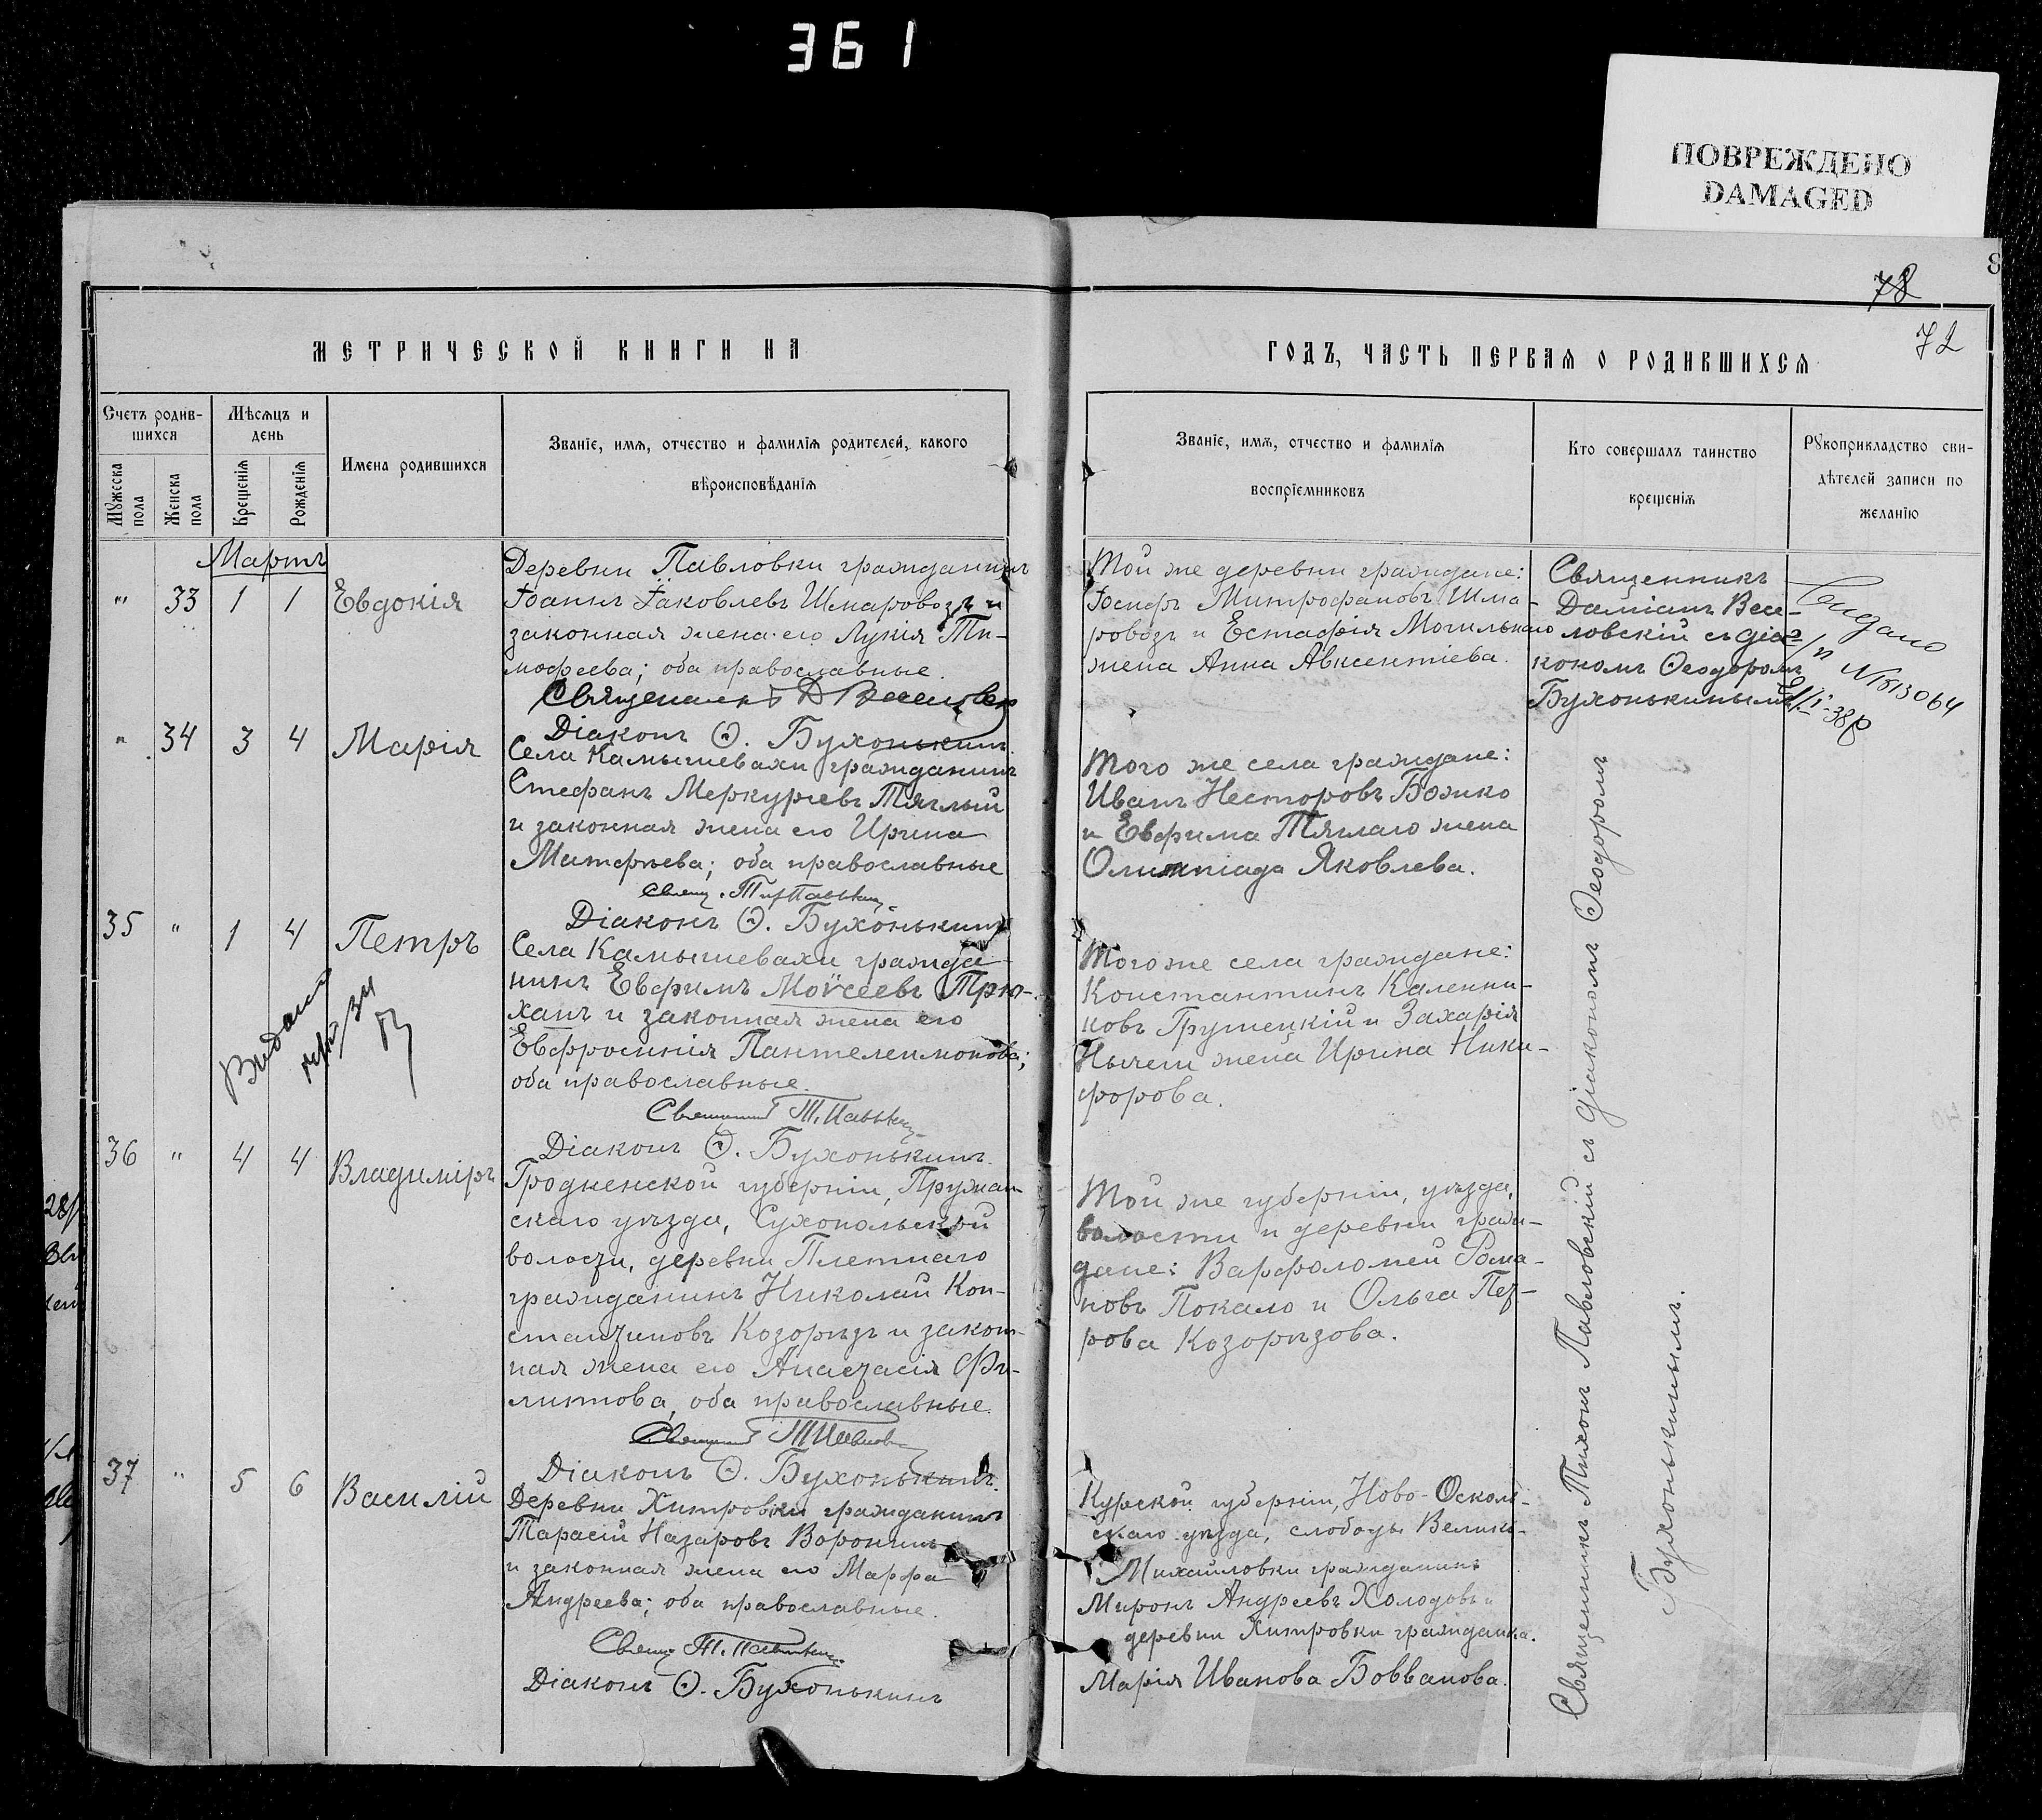 361
ПОВРЕЖДЕНО
DAMAGED
8
78
72
МЕТРИЧЕСКОЙ КНИГИ НА
ГОДЪ, ЧАСТЬ ПЕРВАЯ О РОДИВШИХСЯ
Счетъ родив-
шихся
Мѣсяцъ и
день
Мужеска
пола
Женска
пола
Крещенія
Рожденія
Имена родившихся
Званіе, имя, отчество и фамилія родителей, какого
вѣроисповѣданія
Званіе, имя, отчество и фамилія
воспріемниковъ
Кто совершалъ таинство
крещенія
Рукоприкладство сви-
дѣтелей записи по
желанію
Мартъ
" 33 1 1 Евдокія
Деревни Павловки гражданинъ
Іоаннъ Іаковлевъ Шмаровозъ и
законная жена его Лукія Ти-
мофеева; оба православные.
Священникъ Д Веселовск
Діаконъ Ѳ. Бухонькинъ.
Той же деревни граждане:
Іосифъ Митрофановъ Шма-
ровозъ и Естафія Могильнаго
жена Анна Авксентіева.
Священникъ
Даміанъ Весе-
ловскій съ діа-
кономъ Ѳеодоромъ
Бухонькинымъ.
N 1813064
" 34 3 4 Марія
Села Камышевахи гражданинъ
Стефанъ Меркурьевъ Тяглый
и законная жена его Ирина
Матфѣева; оба православные
Свящ.
Діаконъ Ѳ. Бухонькинъ
Того же села граждане:
Иванъ Несторовъ Божко
и Евфима Тяглаго жена
Олимпіада Яковлева.
35 " 1 4 Петръ
Села Камышевахи гражда-
нинъ Евфимъ Моѵсеевъ Трю-
ханъ и законная жена его
Евфросинія Пантелеимонова;
оба православные.
Діаконъ Ѳ. Бухонькинъ.
Того же села граждане:
Константинъ Каленни-
ковъ Грушецкій и Захарія
жена Ирина Ники-
форова.
36 " 4 4 Владиміръ
Гродненской губерніи, Пружан-
скаго уѣзда, Сухопольской
волости, деревни Плетнаго
гражданинъ Николай Кон-
стантиновъ Козорѣзъ и закон-
ная жена его Анастасія Фи-
липпова, оба православные.
Діаконъ Ѳ. Бухонькинъ.
Той же губерніи, уѣзда,
волости и деревни граж-
дане: Варфоломей Рома-
новъ Покало и Ольга Пет-
рова Козорѣзова.
37 " 5 6 Василій
Деревни Хитровки гражданинъ
Тарасій Назаровъ Воронинъ
и законная жена его Марфа
Андреева; оба православные.
Діаконъ Ѳ. Бухонькинъ
Курской губерніи, Ново-Осколь-
скаго уѣзда, слободы Велико-
Михайловки гражданинъ
Миронъ Андреевъ Холодовъ и
деревни Хитровки гражданка.
Марія Иванова Бовванова.
Священникъ Тихонъ Павловскій съ діакономъ Ѳеодоромъ
Бухонькинымъ.